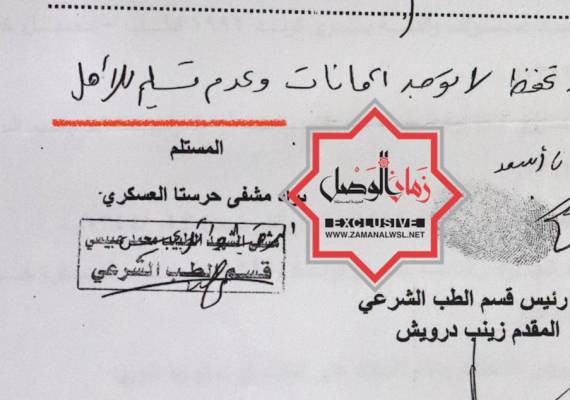 تحفظ لا يوجد امانات وعدم تسليم للأهل
المستلم
مشفى حرستا العسكري
قسم الطب الشرعي
زمان الوصل
EXCLUSIVE
WWW.ZAMANALWSL.NET
رئيس قسم الطب الشرعي
المقدم زينب درويش